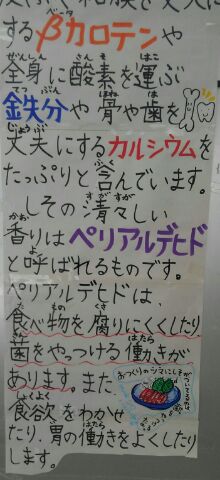 するβカロテンや
全身に酸素を運ぶ
鉄分や骨や歯を
丈夫にするカルシウムを
たっぷりと含んでいます。
しその清々しい
香りはペリアルデヒド
と呼ばれるものです。
ペリアルデヒドは、
食べ物を腐りにくくしたり
菌をやっつける働きが
あります。また、
食欲をわかせ
たり、胃の働きをよくしたり
します。
おつくりのツマにしそ
がついてるのは